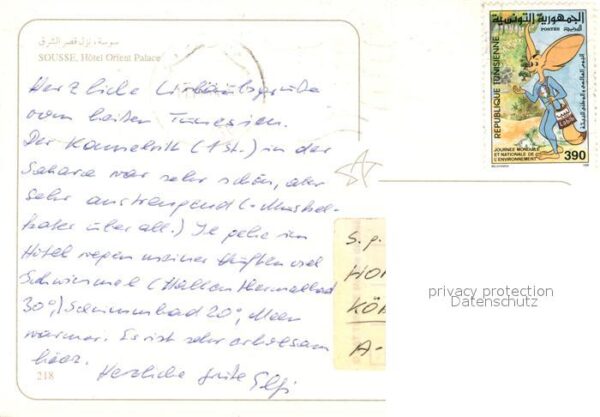 سوسة، نزل قصر الشرق
SOUSSE, Hôtel Orient Palace
Herzliche Urlaubsgrüße
vom heißen Tunesien.
Der Kamelritt (1 St.) in der
Sahara war sehr schön, aber
sehr anstrengend (-Muskel-
kater überall.) Ich gehe im
Hotel wegen meiner Hüften viel
Schwimmen (Hallenthermalbad
30°,) Schwimmbad 20°, Meer
wärmer. Es ist sehr erholsam
hier.
Herzliche Grüße
218
الجمهورية التونسية
POSTES البريد
REPUBLIQUE TUNISIENNE
JOURNEE MONDIALE
ET NATIONALE DE
L'ENVIRONNEMENT
390
S. p.
A-
privacy protection
Datenschutz